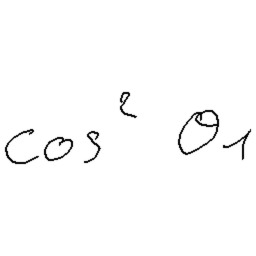 cos² θ₁